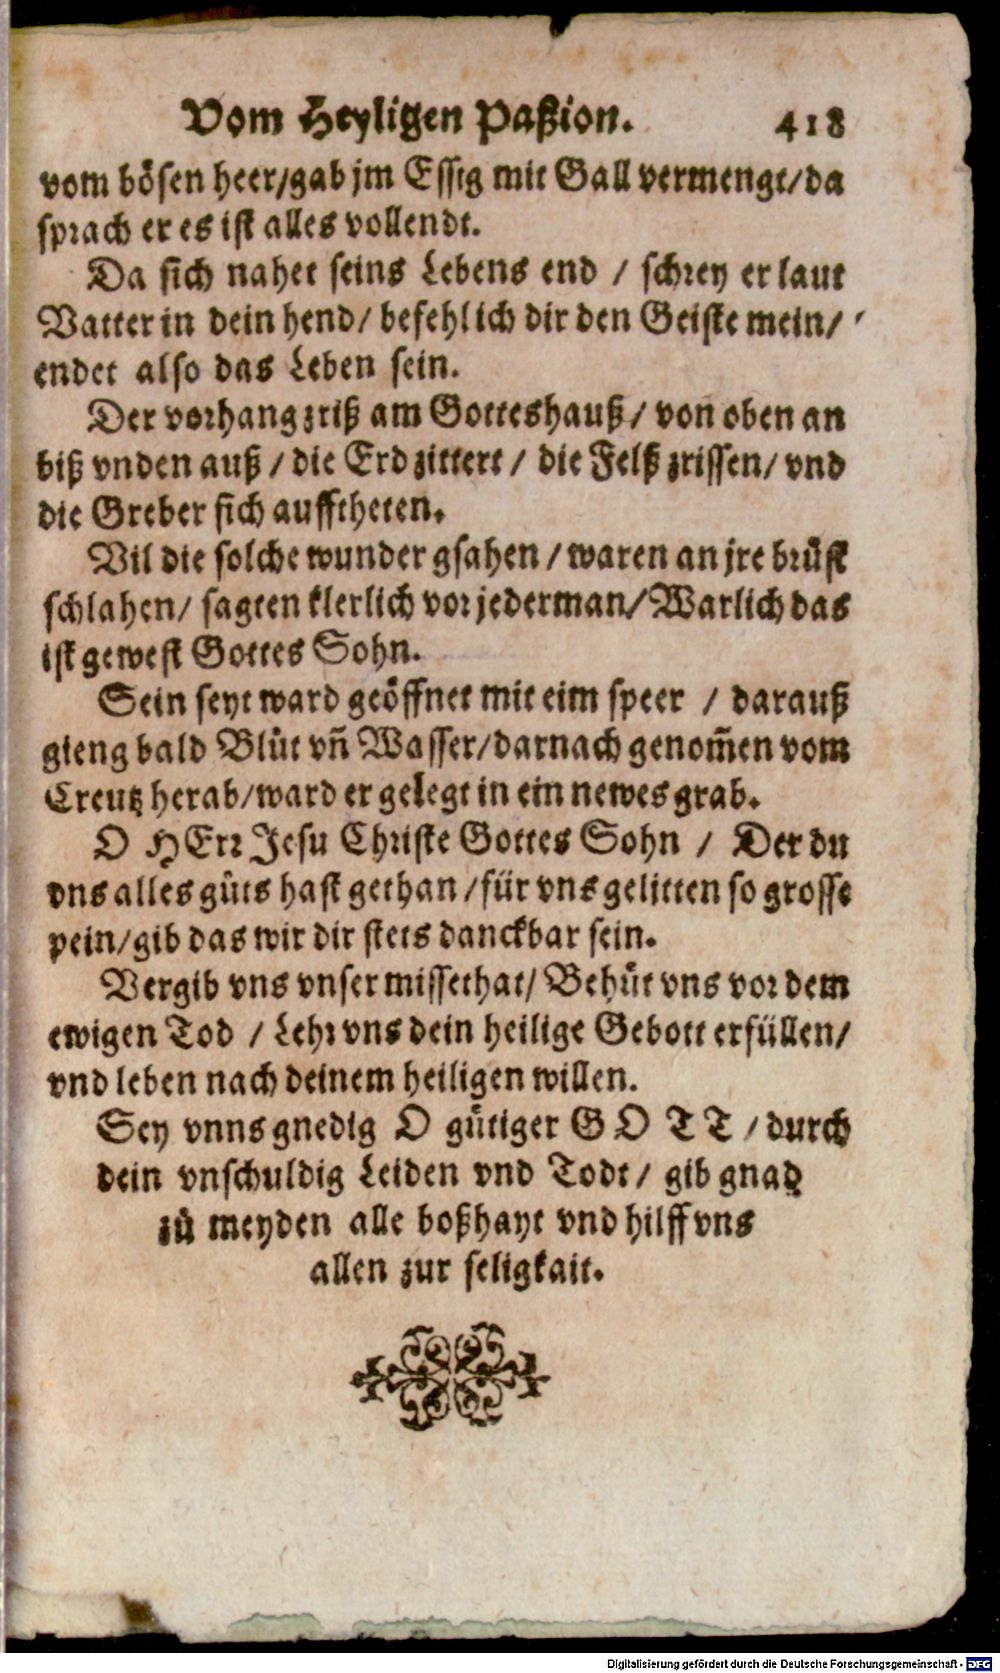 Vom Heyligen Paßion. 418
vom bösen heer/gab jm Essig mit Gall vermengt/da
sprach er es ist alles vollendt.
Da sich nahet seins Lebens end / schrey er laut
Vatter in dein hend/ befehl ich dir den Geiste mein/
endet also das Leben sein.
Der vorhang zriß am Gotteshauß/ von oben an
biß vnden auß / die Erd zittert / die Felß zrissen/ vnd
die Greber sich aufftheten.
Vil die solche wunder gsahen / waren an jre brüst
schlahen/ sagten klerlich vor jederman/ Warlich das
ist gewest Gottes Sohn.
Sein seyt ward geöffnet mit eim speer / darauß
gieng bald Blůt vñ Wasser/darnach genom̃en vom
Creutz herab/ward er gelegt in ein newes grab.
O HErr Jesu Christe Gottes Sohn / Der du
vns alles gůts hast gethan /für vns gelitten so grosse
pein/gib das wir dir stets danckbar sein.
Vergib vns vnser missethat/ Behüt vns vor dem
ewigen Tod / Lehr vns dein heilige Gebott erfüllen/
vnd leben nach deinem heiligen willen.
Sey vnns gnedig O gütiger GOTT / durch
dein vnschuldig Leiden vnd Todt/ gib gnad
zů meyden alle boßhayt vnd hilff vns
allen zur seligkait.
Digitalisierung gefördert durch die Deutsche Forschungsgemeinschaft - DFG